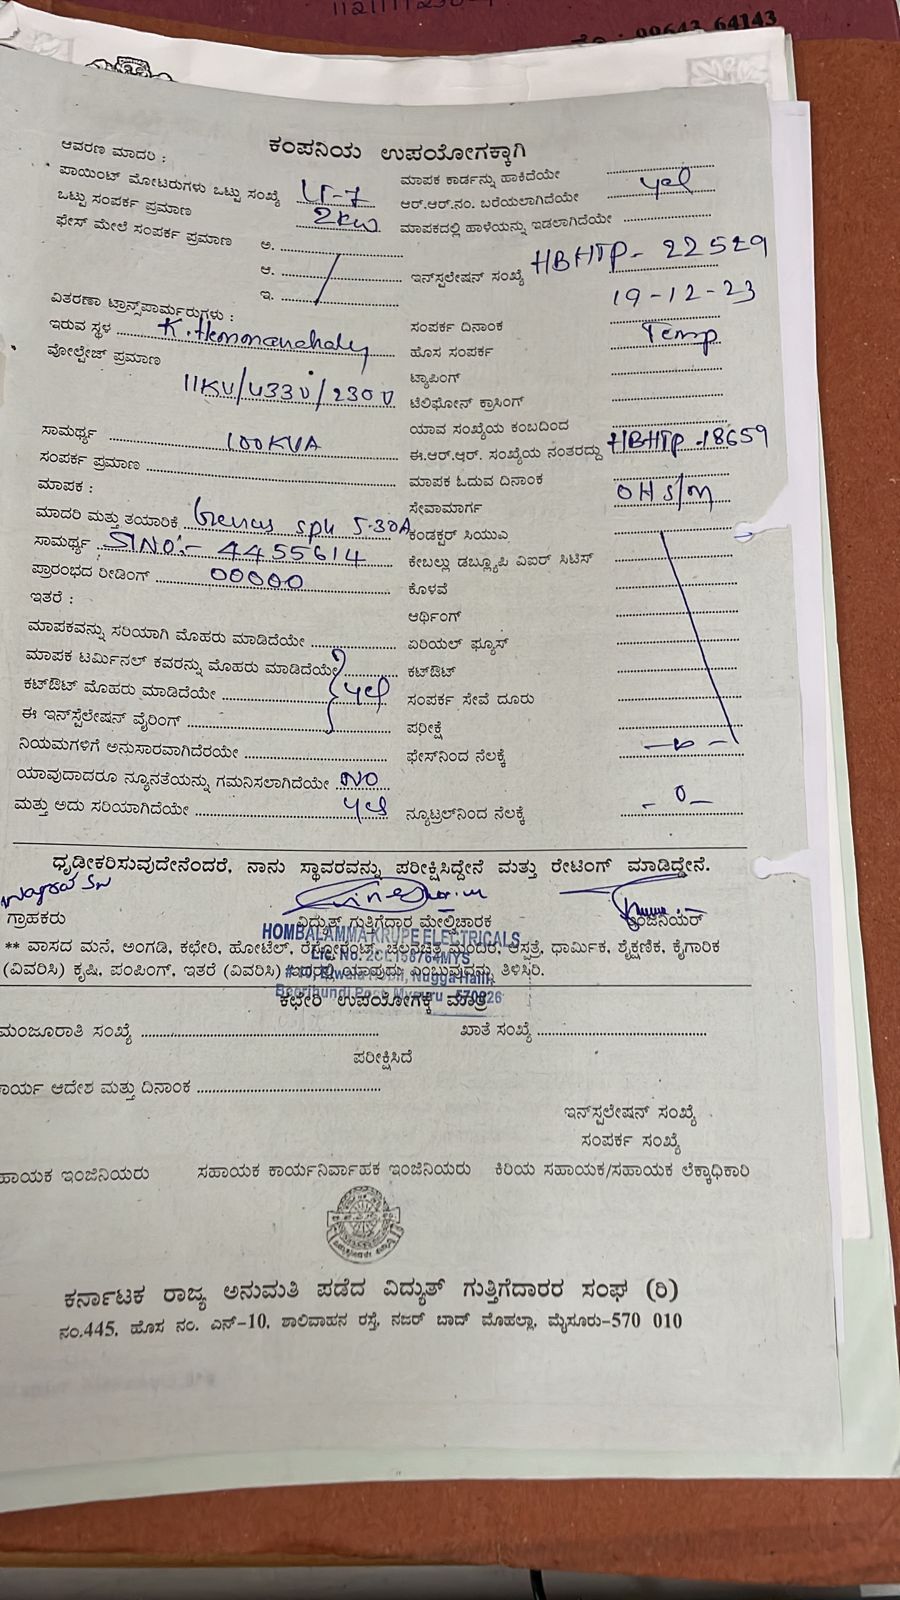 99643 64143
ಕಂಪನಿಯ ಉಪಯೋಗಕ್ಕಾಗಿ
ಆವರಣ ಮಾದರಿ :
ಪಾಯಿಂಟ್ ಮೋಟರುಗಳು ಒಟ್ಟು ಸಂಖ್ಯೆ
ಒಟ್ಟು ಸಂಪರ್ಕ ಪ್ರಮಾಣ 2KW
ಫೇಸ್ ಮೇಲೆ ಸಂಪರ್ಕ ಪ್ರಮಾಣ ಅ.
ಆ.
ಇ.
ವಿತರಣಾ ಟ್ರಾನ್ಸ್‌ಪಾರ್ಮರುಗಳು :
ಇರುವ ಸ್ಥಳ
ವೋಲ್ಟೇಜ್ ಪ್ರಮಾಣ
11KV/433V/230V
ಸಾಮರ್ಥ್ಯ 100KVA
ಸಂಪರ್ಕ ಪ್ರಮಾಣ
ಮಾಪಕ :
ಮಾದರಿ ಮತ್ತು ತಯಾರಿಕೆ Genus sph 5-30A
ಸಾಮರ್ಥ್ಯ SlNO:- 4455614
ಪ್ರಾರಂಭದ ರೀಡಿಂಗ್ 00000
ಇತರೆ :
ಮಾಪಕವನ್ನು ಸರಿಯಾಗಿ ಮೊಹರು ಮಾಡಿದೆಯೇ
ಮಾಪಕ ಟರ್ಮಿನಲ್ ಕವರನ್ನು ಮೊಹರು ಮಾಡಿದೆಯೇ
ಕಟ್‌ಔಟ್ ಮೊಹರು ಮಾಡಿದೆಯೇ yes
ಈ ಇನ್‌ಸ್ಟಲೇಷನ್ ವೈರಿಂಗ್
ನಿಯಮಗಳಿಗೆ ಅನುಸಾರವಾಗಿದೆರಯೇ
ಯಾವುದಾದರೂ ನ್ಯೂನತೆಯನ್ನು ಗಮನಿಸಲಾಗಿದೆಯೇ NO
ಮತ್ತು ಅದು ಸರಿಯಾಗಿದೆಯೇ yes
ಮಾಪಕ ಕಾರ್ಡನ್ನು ಹಾಕಿದೆಯೇ
ಆರ್.ಆರ್.ನಂ. ಬರೆಯಲಾಗಿದೆಯೇ yes
ಮಾಪಕದಲ್ಲಿ ಹಾಳೆಯನ್ನು ಇಡಲಾಗಿದೆಯೇ
ಇನ್‌ಸ್ಟಲೇಷನ್ ಸಂಖ್ಯೆ HBHTP- 22529
19-12-23
ಸಂಪರ್ಕ ದಿನಾಂಕ
ಹೊಸ ಸಂಪರ್ಕ Temp
ಟ್ಯಾಪಿಂಗ್
ಟೆಲಿಫೋನ್ ಕ್ರಾಸಿಂಗ್
ಯಾವ ಸಂಖ್ಯೆಯ ಕಂಬದಿಂದ
ಈ.ಆರ್.ಆರ್. ಸಂಖ್ಯೆಯ ನಂತರದ್ದು HBHTP-18659
ಮಾಪಕ ಓದುವ ದಿನಾಂಕ
ಸೇವಾಮಾರ್ಗ OH S/M
ಕಂಡಕ್ಟರ್ ಸಿಯುಎ
ಕೇಬಲ್ಲು ಡಬ್ಲ್ಯೂಪಿ ವಿಐರ್ ಸಿಟಿಸ್
ಕೊಳವೆ
ಆರ್ಥಿಂಗ್
ಏರಿಯಲ್ ಫ್ಯೂಸ್
ಕಟ್‌ಔಟ್
ಸಂಪರ್ಕ ಸೇವೆ ದೂರು
ಪರೀಕ್ಷೆ
ಫೇಸ್‌ನಿಂದ ನೆಲಕ್ಕೆ
ನ್ಯೂಟ್ರಲ್‌ನಿಂದ ನೆಲಕ್ಕೆ - 0 -
ಧೃಡೀಕರಿಸುವುದೇನೆಂದರೆ, ನಾನು ಸ್ಥಾವರವನ್ನು ಪರೀಕ್ಷಿಸಿದ್ದೇನೆ ಮತ್ತು ರೇಟಿಂಗ್ ಮಾಡಿದ್ದೇನೆ.
ಗ್ರಾಹಕರು ವಿದ್ಯುತ್ ಗುತ್ತಿಗೆದಾರ ಮೇಲ್ವಿಚಾರಕ ಇಂಜಿನಿಯರ್
HOMBALAMMA KRUPE ELECTRICALS
Lic. No. 2CL158764MYS
Mysuru - 570026
** ವಾಸದ ಮನೆ, ಅಂಗಡಿ, ಕಛೇರಿ, ಹೋಟೆಲ್, ರೆಸ್ಟೋರೆಂಟ್, ಚಲನಚಿತ್ರ ಮಂದಿರ, ಆಸ್ಪತ್ರೆ, ಧಾರ್ಮಿಕ, ಶೈಕ್ಷಣಿಕ, ಕೈಗಾರಿಕ
(ವಿವರಿಸಿ) ಕೃಷಿ, ಪಂಪಿಂಗ್, ಇತರೆ (ವಿವರಿಸಿ) ಇದರಲ್ಲಿ ಯಾವುದು ಎಂಬುವುದನ್ನು ತಿಳಿಸಿರಿ.
ಕಛೇರಿ ಉಪಯೋಗಕ್ಕೆ ಮಾತ್ರ
ಮಂಜೂರಾತಿ ಸಂಖ್ಯೆ ಖಾತೆ ಸಂಖ್ಯೆ
ಪರೀಕ್ಷಿಸಿದೆ
ಕಾರ್ಯ ಆದೇಶ ಮತ್ತು ದಿನಾಂಕ
ಇನ್‌ಸ್ಪಲೇಷನ್ ಸಂಖ್ಯೆ
ಸಂಪರ್ಕ ಸಂಖ್ಯೆ
ಹಾಯಕ ಇಂಜಿನಿಯರು ಸಹಾಯಕ ಕಾರ್ಯನಿರ್ವಾಹಕ ಇಂಜಿನಿಯರು ಕಿರಿಯ ಸಹಾಯಕ/ಸಹಾಯಕ ಲೆಕ್ಕಾಧಿಕಾರಿ
ಕರ್ನಾಟಕ ರಾಜ್ಯ ಅನುಮತಿ ಪಡೆದ ವಿದ್ಯುತ್ ಗುತ್ತಿಗೆದಾರರ ಸಂಘ (ರಿ)
ನಂ.445, ಹೊಸ ನಂ. ಎನ್-10, ಶಾಲಿವಾಹನ ರಸ್ತೆ, ನಜರ್ ಬಾದ್ ಮೊಹಲ್ಲಾ, ಮೈಸೂರು-570 010